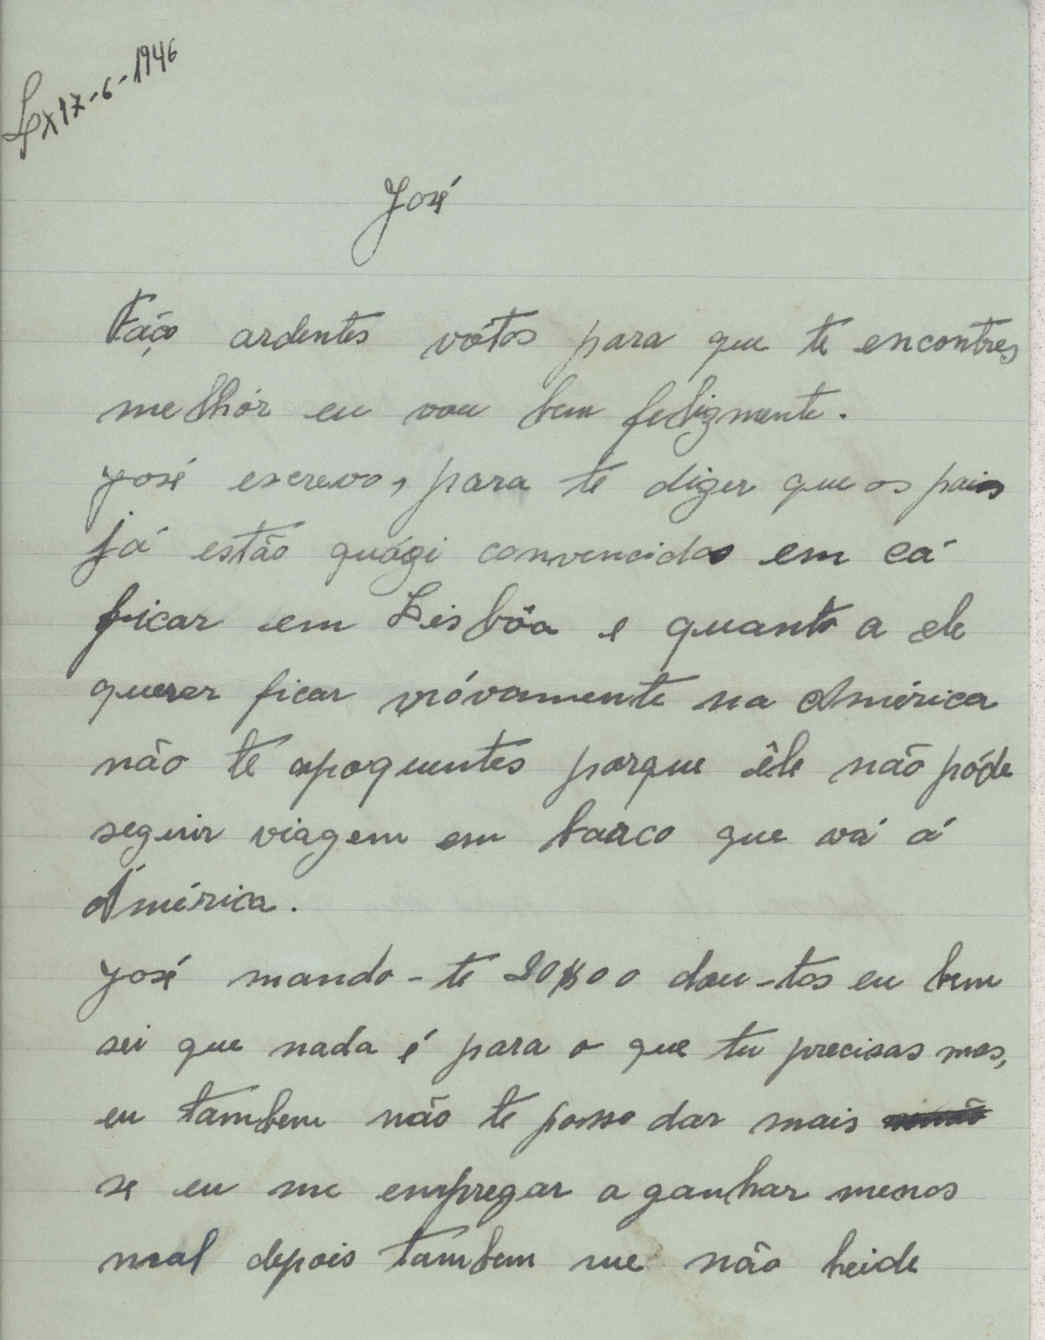 Lx 17-6-1946
José
Faço ardentes vótos para que te encontres
melhór eu vou bem felizmente.
José escrevo, para te dizer que os pais
já estão quázi convencidos em cá
ficar em Lisbôa e quanto a ele
querer ficar nóvamente na América
não te apoquentes porque êle não póde
seguir viagem em barco que vá á
América.
José mando-te 20$00 dou-tos eu bem
sei que nada é para o que tu precisas mas,
eu tambem não te posso dar mais
se eu me empregar a ganhar menos
mal depois tambem me não heide